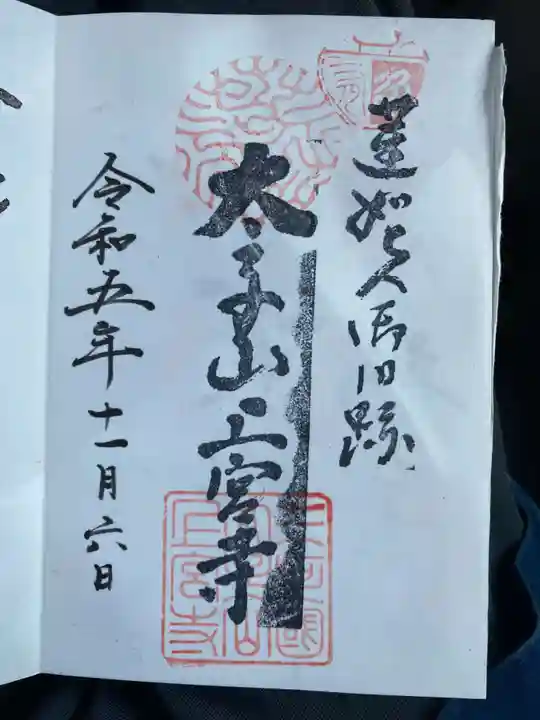 蓮如上人御旧跡
太子山上宮寺
令和五年十一月六日